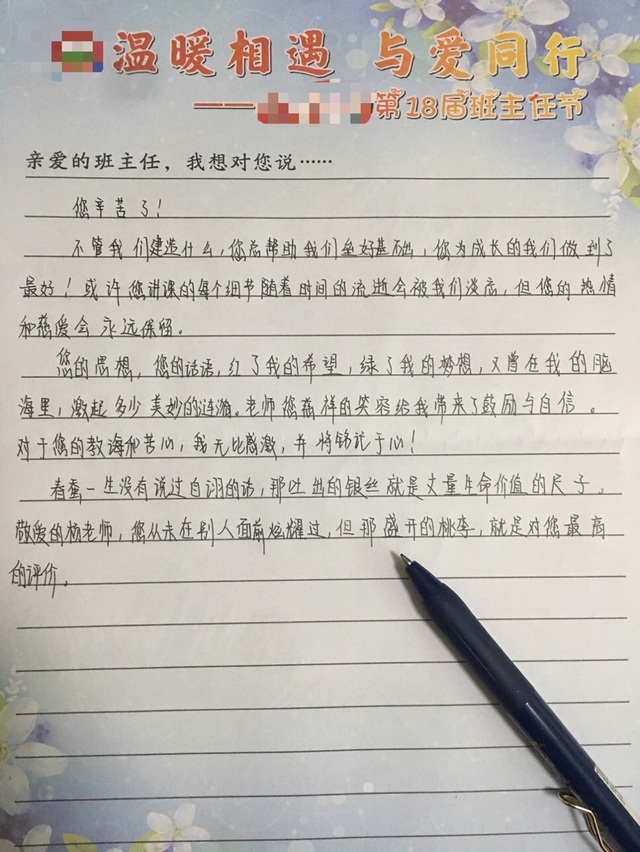 温暖相遇 与爱同行
——第18届班主任节
亲爱的班主任，我想对您说……
您辛苦了！
不管我们建造什么，您总帮助我们垒好基础，您为成长的我们做到了
最好！或许您讲课的每个细节随着时间的流逝会被我们淡忘，但您的热情
和慈爱会永远保留。
您的思想，您的话语，红了我的希望，绿了我的梦想，又曾在我的脑
海里，激起多少美妙的涟漪。老师您慈祥的笑容给我带来了鼓励与自信。
对于您的教诲和苦心，我无比感激，并将铭记于心！
春蚕一生没有说过自诩的话，那吐出的银丝就是丈量生命价值的尺子。
敬爱的杨老师，您从未在别人面前炫耀过，但那盛开的桃李，就是对您最高
的评价。